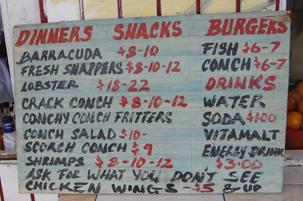 DINNERS SNACKS
BARRACUDA $8-10
FRESH SNAPPERS $8-10-12
LOBSTER $18-22
CRACK CONCH $8-10-12
CONCHY CONCH FRITTERS
CONCH SALAD $10-
SCORCH CONCH $9
SHRIMPS $8-10-12
BURGERS
FISH $6-7
CONCH $6-7
DRINKS
WATER
SODA $100
VITAMALT
ENERGY DRINK
$3.00
ASK FOR WHAT YOU DON'T SEE
CHICKEN WINGS -$5 & UP